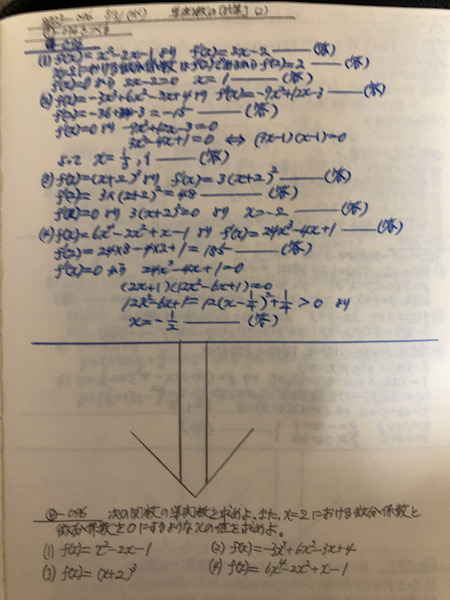 導関数の計算(2)
(1) f(x)=x²-2x-1より f'(x)=2x-2 ——(答)
x=2における微分係数は f'(2)=2 ——(答)
f'(x)=0より 2x-2=0 x=1 ——(答)
(2) f(x)=-3x³+6x²-3x+4より f'(x)=-9x²+12x-3 ——(答)
=-15 ——(答)
f'(x)=0より -9x²+12x-3=0
3x²-4x+1=0 ⇔ (3x-1)(x-1)=0
よって x=1/3, 1 ——(答)
(3) f(x)=(x+2)³より f'(x)=3(x+2)² ——(答)
f'(2)=3×(2+2)²=48 ——(答)
f'(x)=0より 3(x+2)²=0より x=-2 ——(答)
(4) f(x)=6x⁴-2x²+x-1より f'(x)=24x³-4x+1 ——(答)
f'(2)=24×8-4×2+1=185 ——(答)
f'(x)=0より 24x³-4x+1=0
(2x+1)(12x²-6x+1)=0
12x²-6x+1=12(x-1/4)²+1/4>0より
x=-1/2 ——(答)
次の関数の導関数を求めよ。また、x=2における微分係数と
微分係数を0にするようなxの値を求めよ。
(1) f(x)=x²-2x-1 (2) f(x)=-3x³+6x²-3x+4
(3) f(x)=(x+2)³ (4) f(x)=6x⁴-2x²+x-1